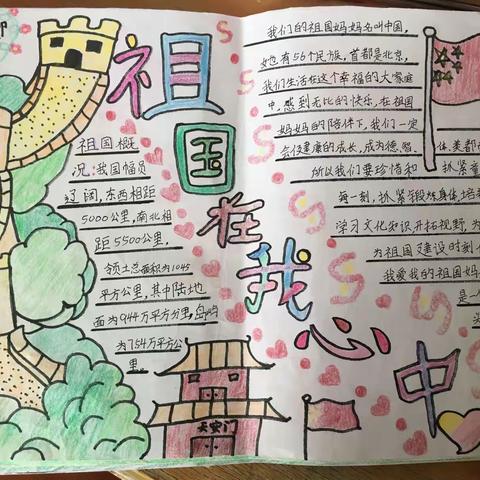 祖国在我心中
祖国概
况:我国幅员
辽阔,东西相距
5000公里,南北相
距5500公里,
领土总面积为1045
平方公里,其中陆地
面为944万平方分里,岛屿
为7.54万平方公
里。
我们的祖国妈妈名叫中国,
她也有56个民族,首都是北京,
我们生活在这个幸福的大家庭
中,感到无比的快乐,在祖国
妈妈的陪伴下,我们一定
会健康的成长,成为德、智、
体、美都
所以我们要珍惜和
抓紧
每一刻,抓紧锻炼身体,培养
学习文化知识开拓视野,为
为祖国建设时刻
我爱我的祖国妈
是一
天安门